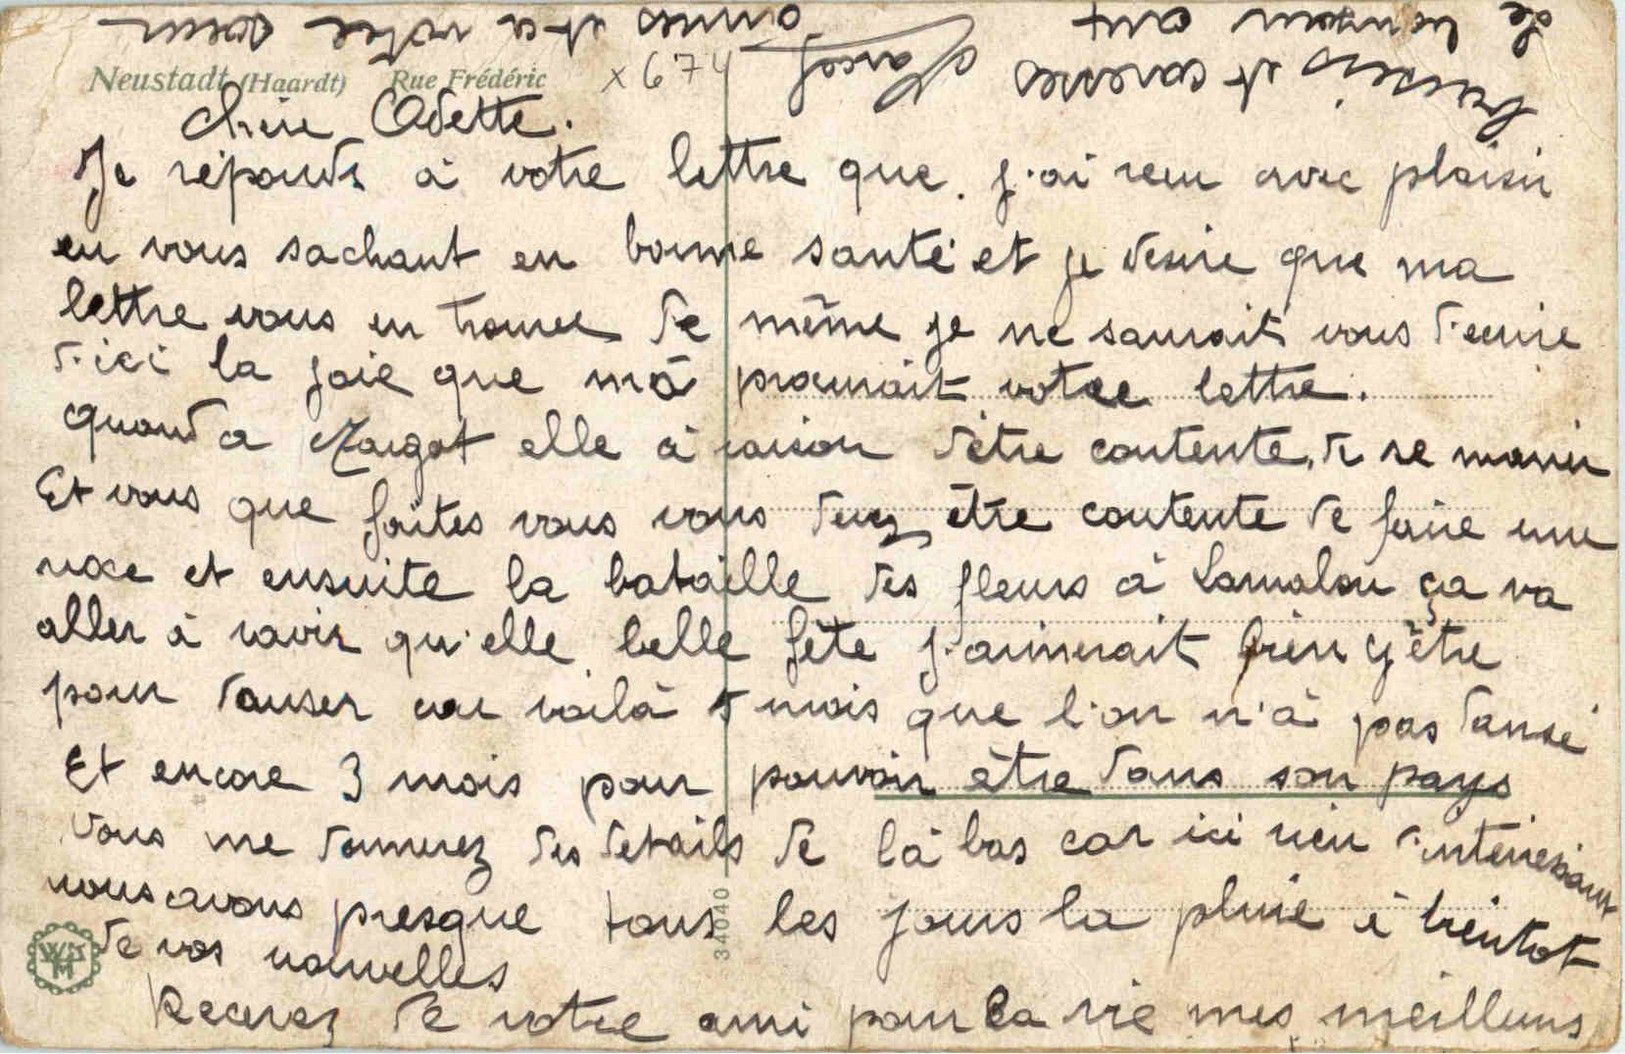 Neustadt (Haardt) Rue Frédéric
x 674
Chère Odette.
Je réponds à votre lettre que j'ai recu avec plaisir
en vous sachant en bonne santé et je desire que ma
lettre vous en trouve de même je ne saurait vous d'ecrire
d'ici la joie que m'à procurait votre lettre.
quand a Margot elle à raison d'être contente, de se marier
Et vous que faites vous vous devez être contente de faire une
noce et ensuite la bataille des fleurs à Lamalou ça va
aller à ravir qu'elle belle fête j'aimerait bien y être
pour danser car voilà 5 mois que l'on n'à pas dansé
Et encore 3 mois pour pouvoir être dans son pays
vous me donnerez des details de là bas car ici rien d'intéressant
nous avons presque tous les jours la pluie à bientot
de vos nouvelles
Recevez de votre ami pour la vie mes meilleurs
baisers et caresses Marcel
le bonjour aux
amies et a votre sœur
34040